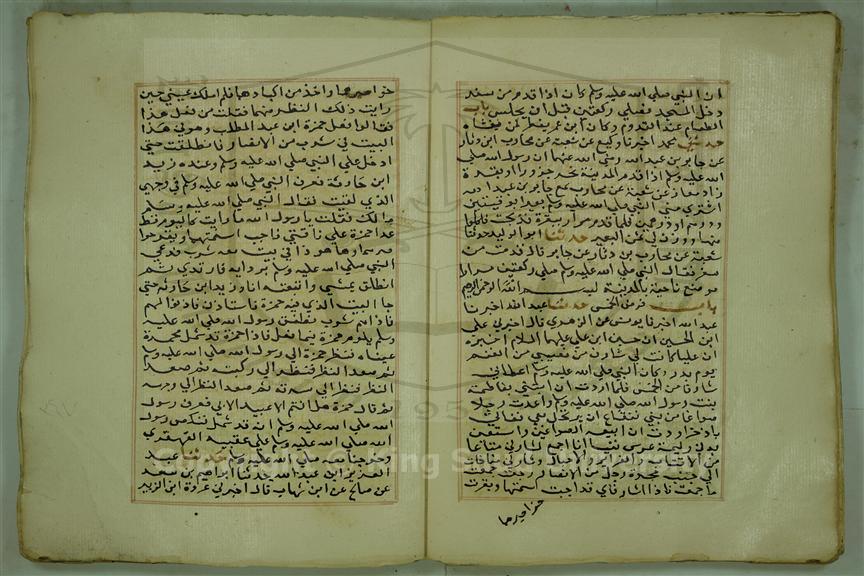 ان النبي صلي الله عليه وسلم كان اذا قدم من سفر
دخل المسجد فصلي ركعتين قبل ان يجلس باب
الطعام عند القدوم وكان ابن عمر يفطر لمن يغشاه
حدثني محمد اخبرنا وكيع عن شعبة عن محارب ابن دثار
عن جابر بن عبد الله رضي الله عنهما ان رسول الله صلي
الله عليه وسلم لما قدم المدينة نحر جزورا او بقرة
زاد معاذ عن شعبة عن محارب سمع جابر بن عبد الله
اشتري مني النبي صلي الله عليه وسلم بعيرا بوقيتين
ودرهم او درهمين فلما قدم صرارا امر ببقرة فذبحت فاكلوا
منها ووزن لي ثمن البعير حدثنا ابو الوليد حدثنا
شعبة عن محارب بن دثار عن جابر قال قدمت من
سفر فقال النبي صلي الله عليه وسلم صلي ركعتين صرار
موضع ناحية بالمدينة بسم الله الرحمن الرحيم
باب فرض الخمس حدثنا عبدان اخبرنا
عبد الله اخبرنا يونس عن الزهري قال اخبرني علي
ابن الحسين ان حسين ابن علي عليهما السلام اخبره
ان عليا قال كانت لي شارف من نصيبي من المغنم
يوم بدر وكان النبي صلي الله عليه وسلم اعطاني
شارفا من الخمس فلما اردت ان ابتني بفاطمة
بنت رسول الله صلي الله عليه وسلم واعدت رجلا
صواغا من بني قينقاع ان يرتحل معي فناتي
باذخر اردت ان ابيعه الصواغين واستعين
به في وليمة عرسي فبينا انا اجمع لشارفي متاعا
من الاقتاب والغراير والحبال وشارفاي مناختان
الي جنب حجرة رجل من الانصار رجعت حين جمعت
ما جمعت فاذا شارفاي قد اجبت اسنمتها وبقرت
خواصرهما
خواصرهما واخذ من اكبادهما فلم املك عيني حين
رايت ذلك المنظر منهما فقلت من فعل هذا
فقالوا فعل حمزة ابن عبد المطلب وهو في هذا
البيت في شرب من الانصار فانطلقت حتي
ادخل علي النبي صلي الله عليه وسلم وعنده زيد
ابن حارثة فعرف النبي صلي الله عليه وسلم في وجهي
الذي لقيت فقال النبي صلي الله عليه وسلم
ما لك فقلت يا رسول الله ما رايت كاليوم قط
عدا حمزة علي ناقتي فاجب اسنمتهما وبقر خواصر
هما وها هو ذا في بيت معه شرب فدعي
النبي صلي الله عليه وسلم بردايه فارتدي ثم
انطلق يمشي واتبعته انا وزيد ابن حارثة حتي
جا البيت الذي فيه حمزة فاستاذن فاذنوا لهم
فاذا هم شرب فطفق رسول الله صلي الله عليه
وسلم يلوم حمزة فيما فعل فاذا حمزة قد ثمل محمرة
عيناه فنظر حمزة الي رسول الله صلي الله عليه وسلم
ثم صعد النظر فنظر الي ركبته ثم صعد
النظر فنظر الي سرته ثم صعد النظر الي وجهه
ثم قال حمزة هل انتم الا عبيد لابي فعرف رسول
الله صلي الله عليه وسلم انه قد ثمل فنكص رسول
الله صلي الله عليه وسلم علي عقبيه القهقري
وخرجنا معه صلي الله عليه وسلم حدثنا عبد
العزيز ابن عبد الله حدثنا ابراهيم بن سعد
عن صالح عن ابن شهاب قال اخبرني عروة ابن الزبير